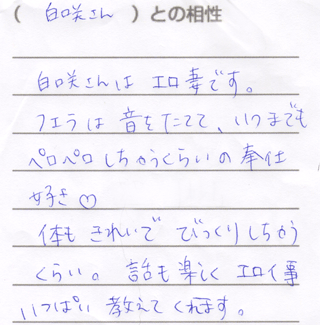 ( 白咲さん )との相性
白咲さんは エロ妻です。
フェラは 音をたてて、いつまでも
ペロペロ しちゃうくらいの 奉仕
好き♡
体も きれいで びっくりしちゃう
くらい。 話も楽しく エロイ事
いっぱい 教えてくれます。